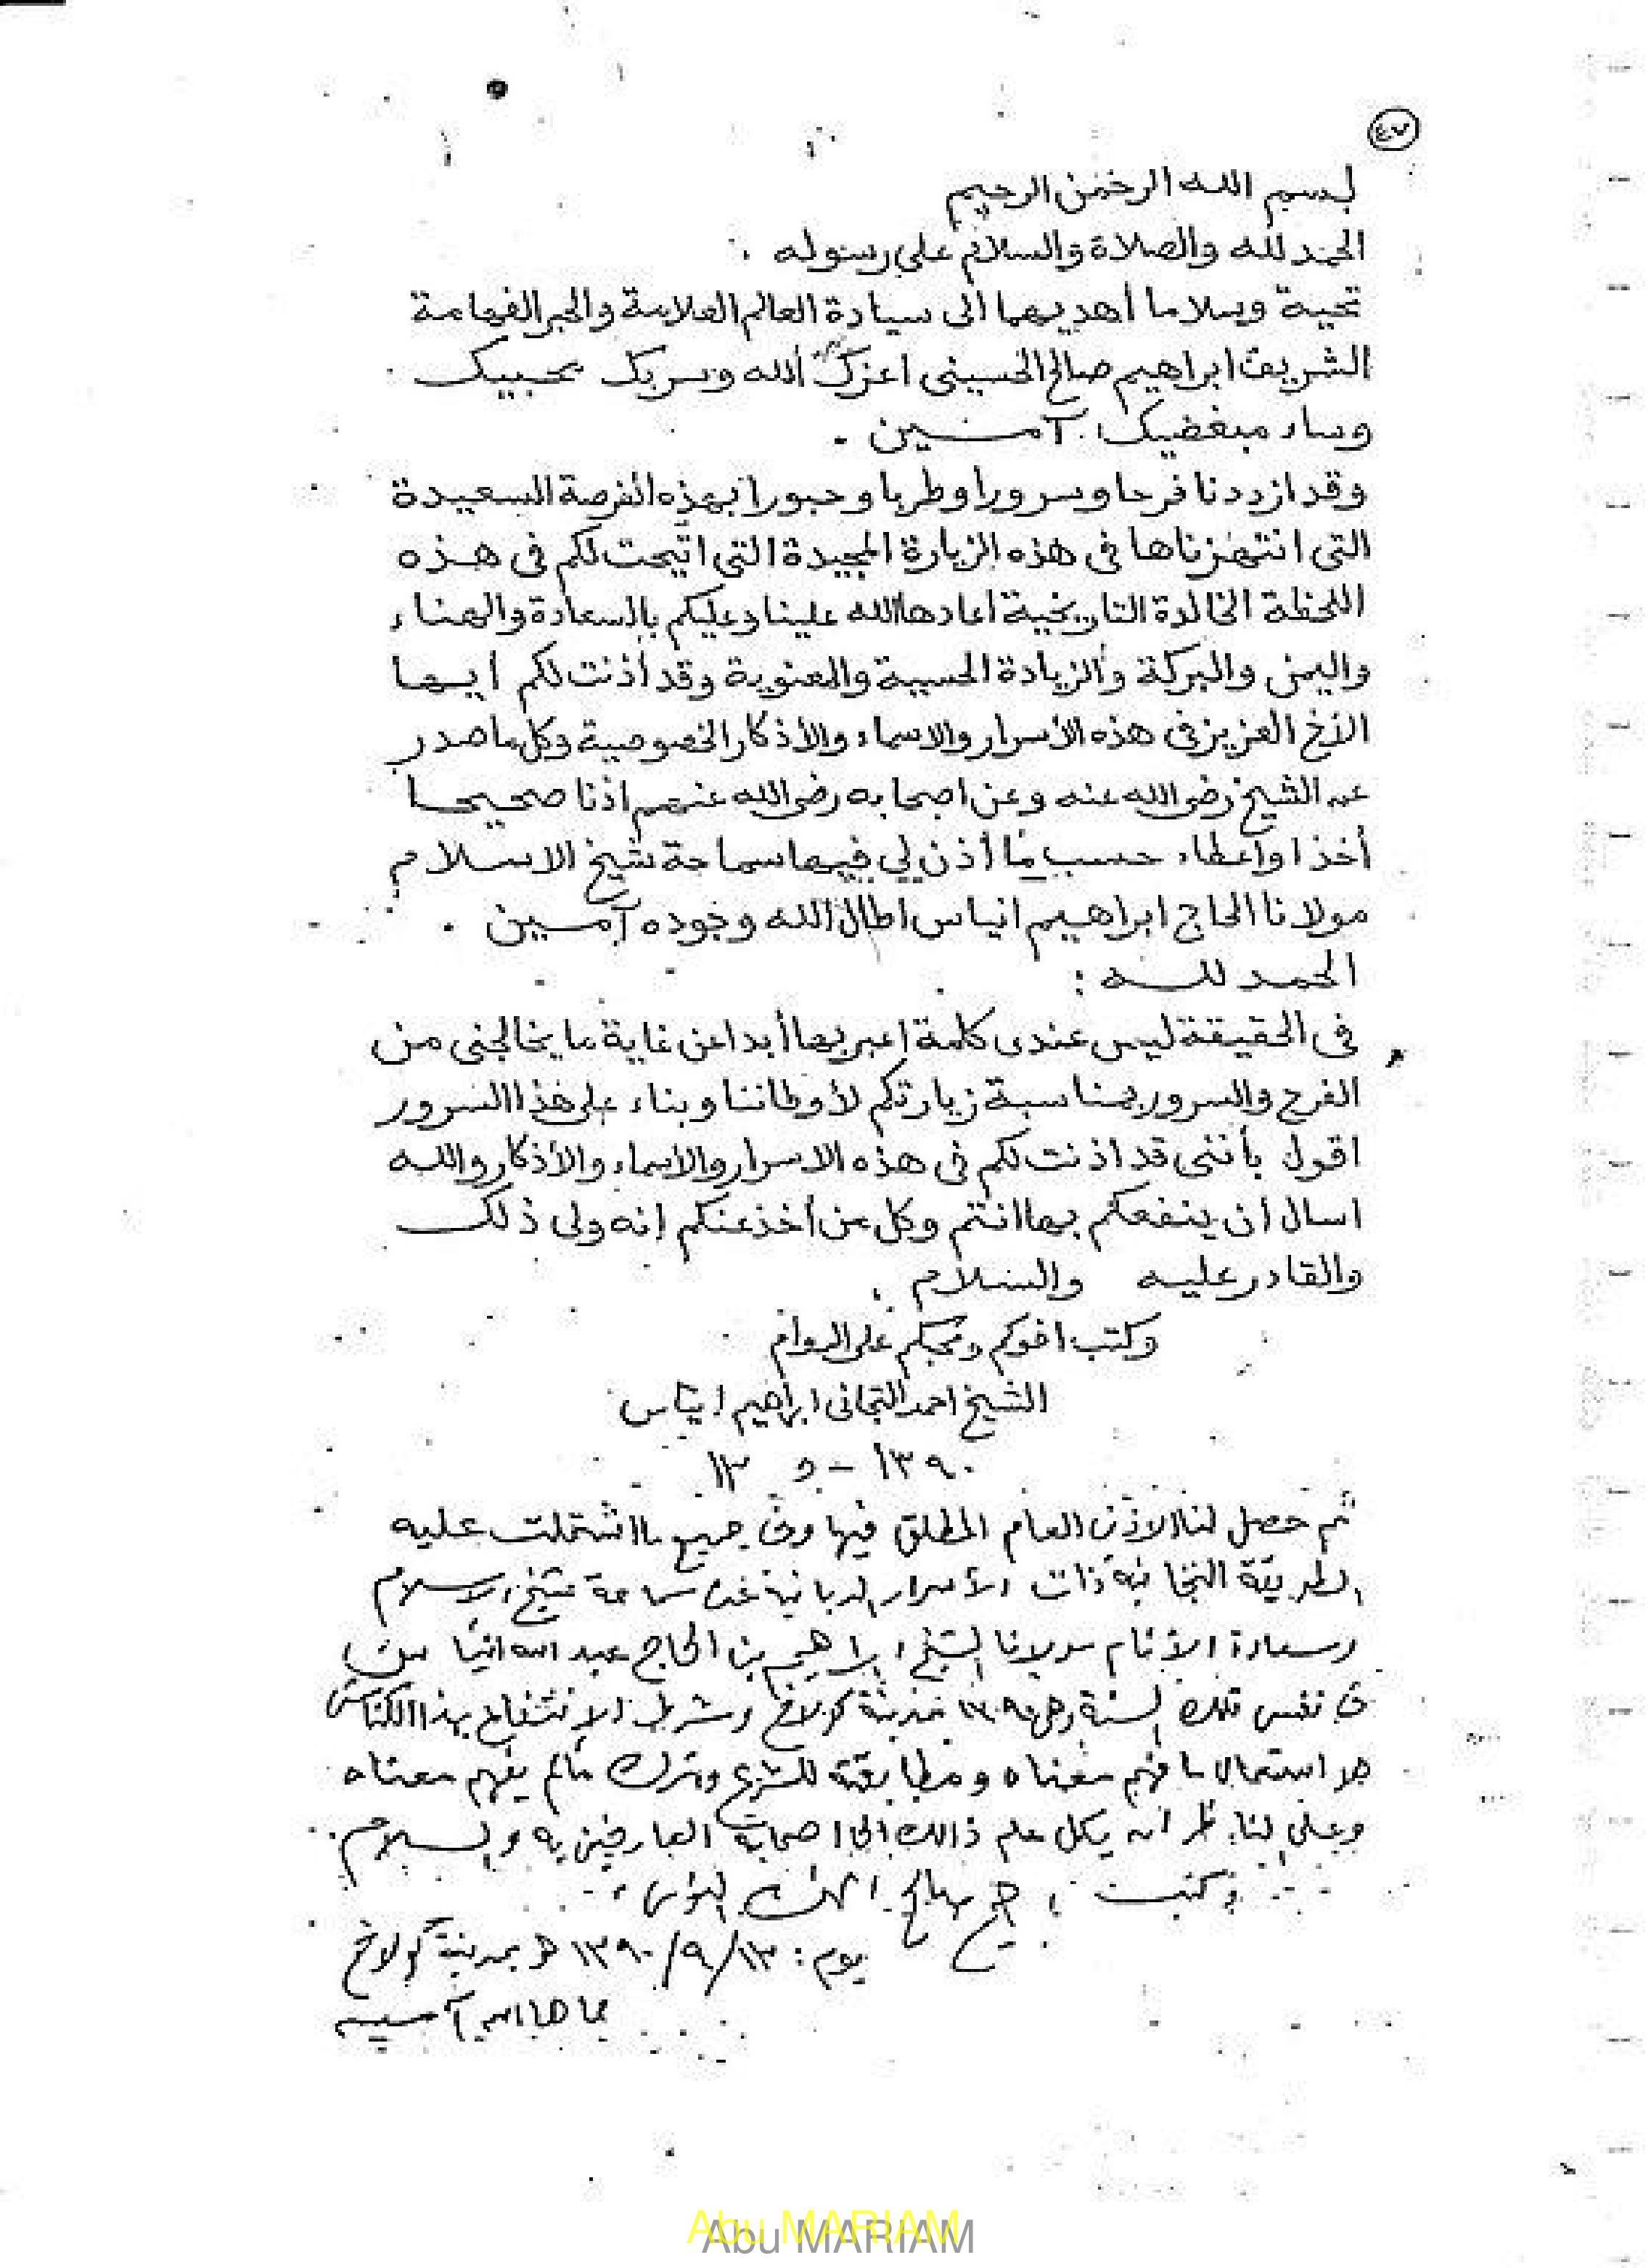 ٤٧
بسم الله الرحمن الرحيم
الحمد لله والصلاة والسلام على رسوله .
تحية وسلاما أهديهما الى سيادة العالم العلامة والحبر الفهامة
الشريف ابراهيم صالح الحسيني اعزك الله وسر بك محبيك
وساء مبغضيك . آمــين .
وقد ازددنا فرحا وسرورا وطربا وحبورا بهذه الفرصة السعيدة
التى انتهزناها فى هذه الزيارة المجيدة التى اتيحت لكم فى هذه
اللحظة الخالدة التاريخية اعادها الله علينا وعليكم بالسعادة والهناء
واليمن والبركة والزيادة الحسية والمعنوية وقد أذنت لكم ايها
الأخ العزيز فى هذه الأسرار والاسماء والأذكار الخصوصية وكل ما صدر
عن الشيخ رضى الله عنه وعن اصحابه رضى الله عنهم اذنا صحيحا
أخذا واعطاء حسب ما أذن لي فيها سماحة شيخ الاسلام
مولانا الحاج ابراهيم انياس اطال الله وجوده آمــين .
الحمد لله :
فى الحقيقة ليس عندى كلمة اعبر بها أبدا عن غاية ما يخالجنى من
الفرح والسرور بمناسبة زيارتكم لأوطاننا وبناء على هذا السرور
اقول بأننى قد اذنت لكم فى هذه الاسرار والاسماء والأذكار والله
اسال ان ينفعكم بها انتم وكل من أخذ عنكم إنه ولى ذلك
والقادر عليه والسلام .
وكتب اخوكم ومحبكم على الدوام
الشيخ احمد التجانى ابراهيم انياس
١٣٩٠ - ١٣
ثم حصل لنا الاذن العام المطلق فيها وفى جميع ما اشتملت عليه
الطريقة التجانية ذات الأسرار الربانية عن سماحة شيخ الاسلام
وسعادة الأنام مولانا الشيخ ابراهيم بن الحاج عبد الله انياس
فى نفس تلك السنة وهى ١٣٩٠ بمدينة كولاخ وشرط الإنتفاع بهذا الكناش
هو استعمال ما فهم معناه ومطابقته للشرع وترك مالم يفهم معناه
وعلى الناظر ان يكل علم ذالك الى اصحابه العارفين به والسلام .
وكتبت صالح
يوم : ١٣٩٠/٩/١٣ هـ بمدينة كولاخ
حماها الله آمــين
Abu MARIAM